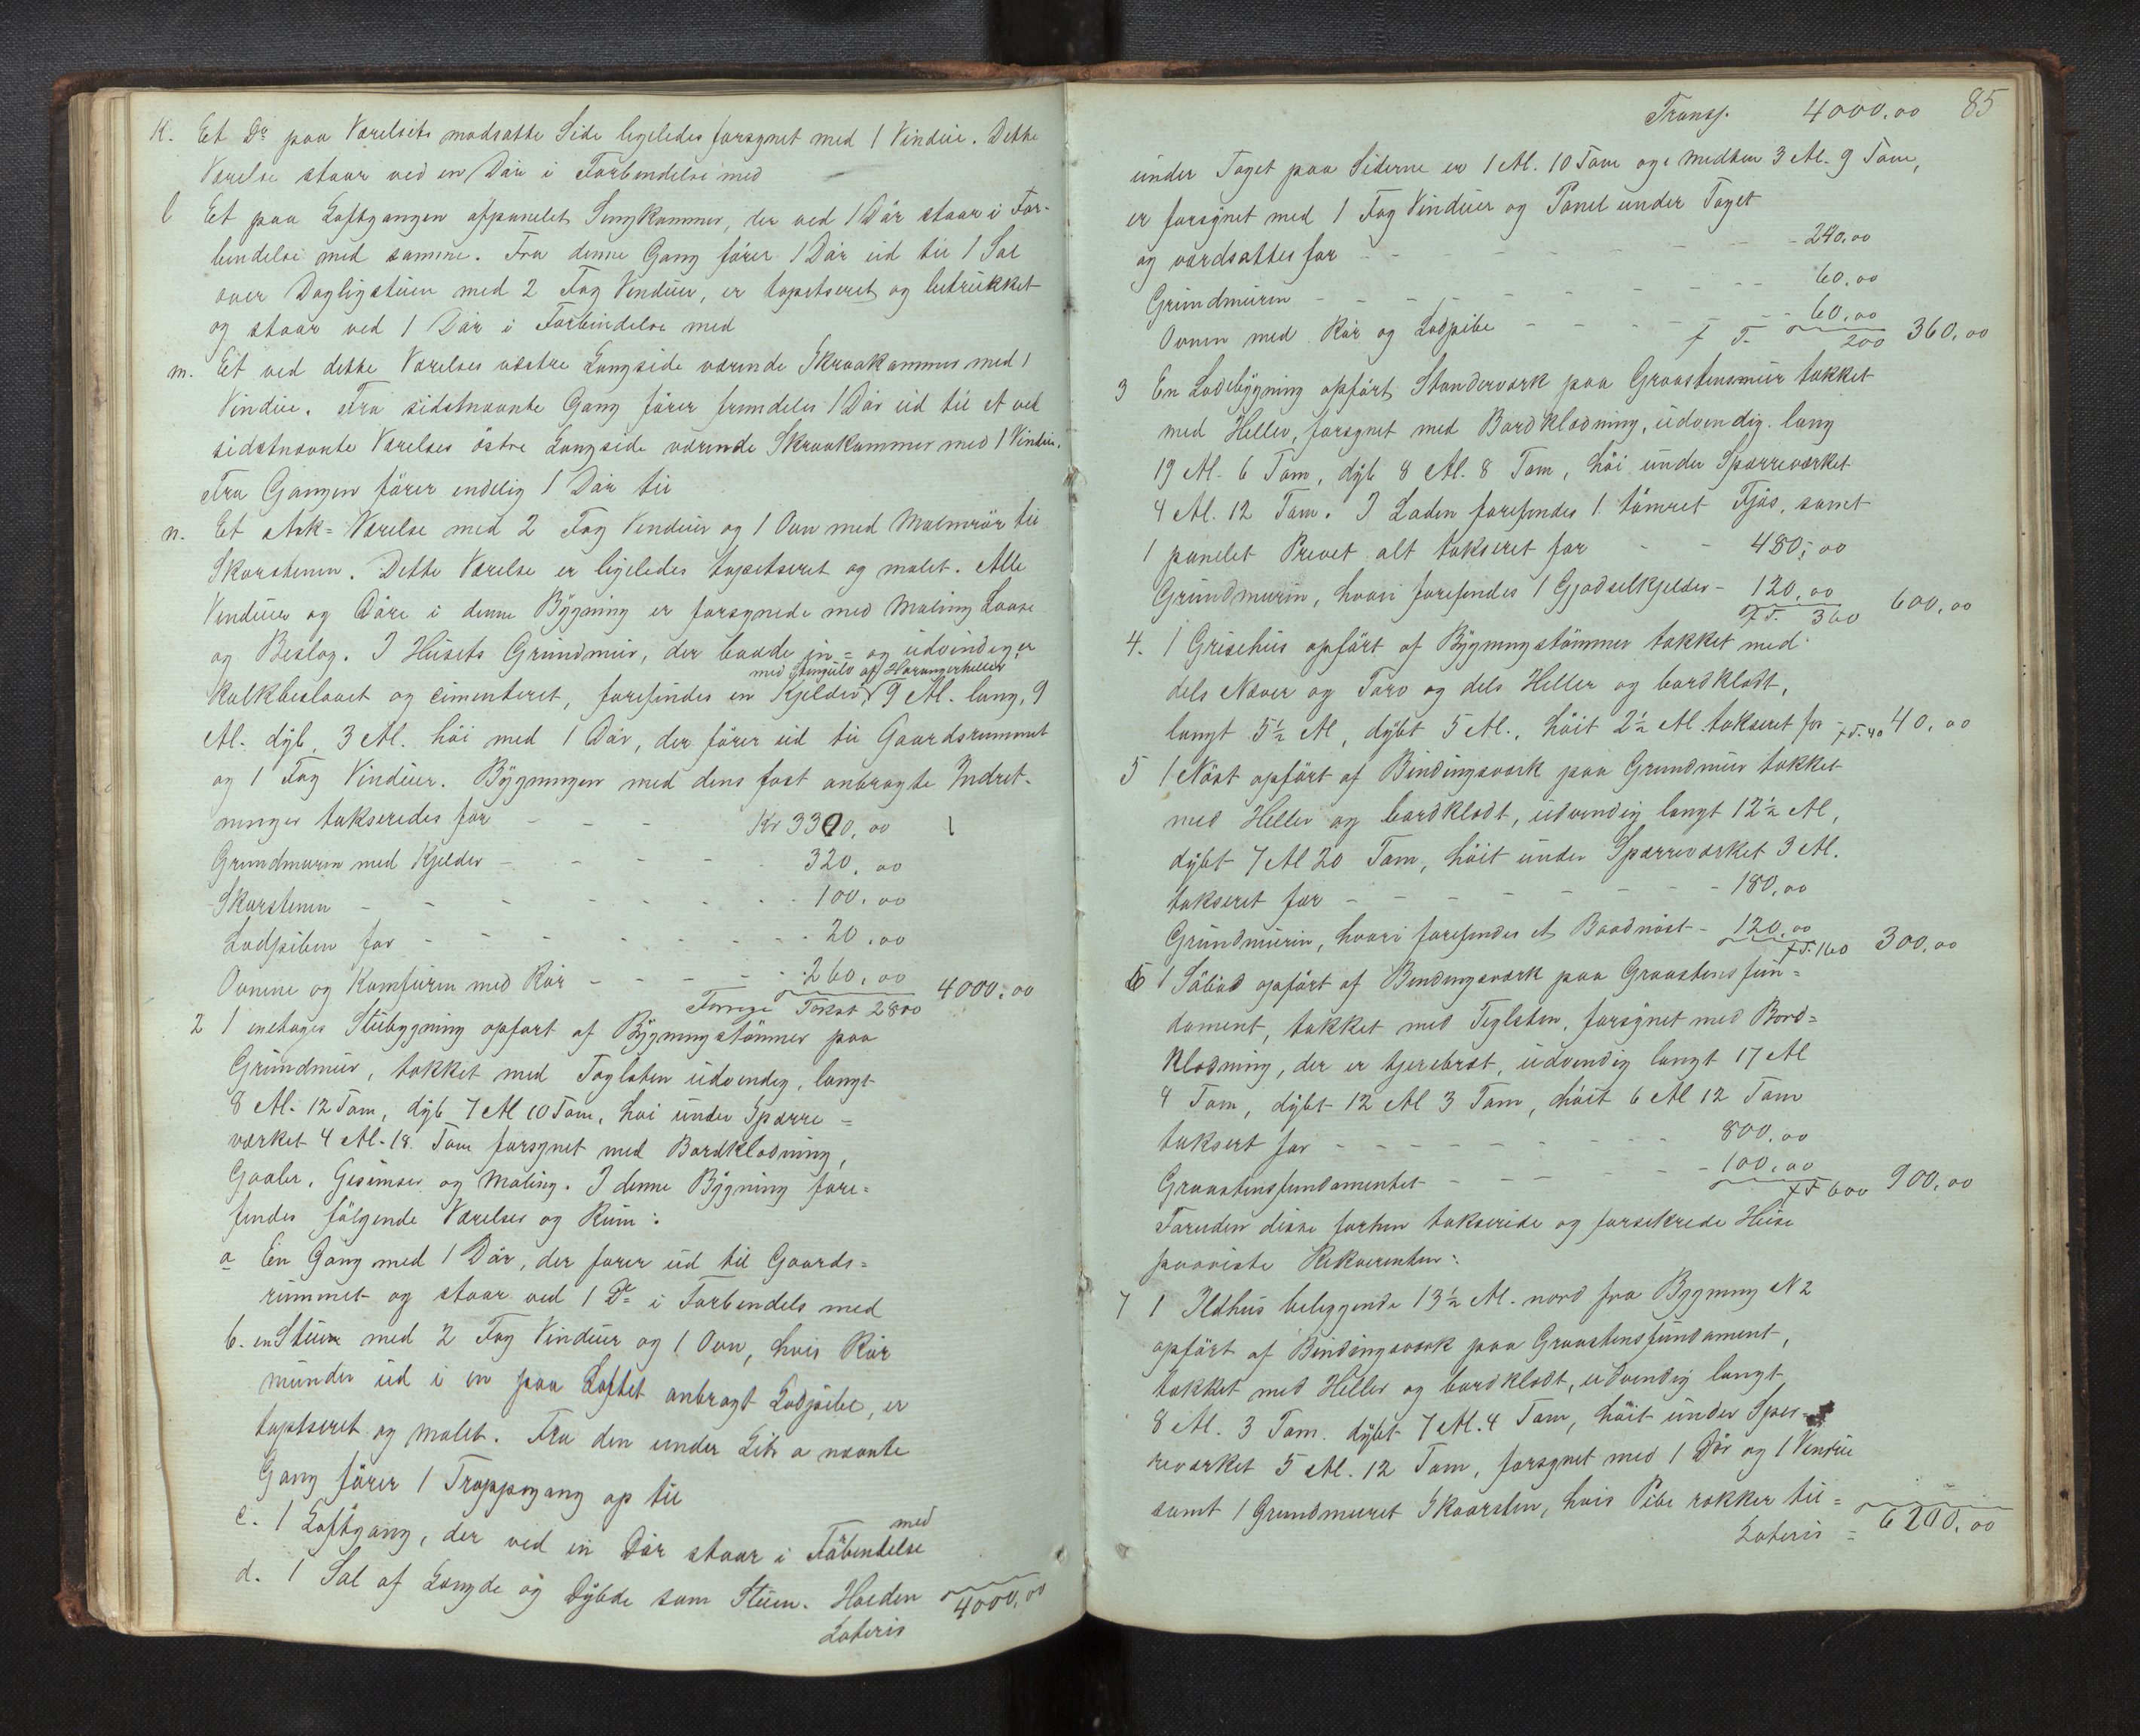 K. Et Do paa Værelsets modsatte Side ligeledes forsynet med 1 Vindue. Dette
Værelse staar ved en Dør i Forbindelse med
l Et paa Loftgangen afpanelet Sengkammer, der ved 1 Dør staar i For-
bindelse med samme. Fra denne Gang fører 1 Dør ud til 1 Sal
over Dagligstuen med 2 Fag Vinduer, er tapetseret og betrukket
og staar ved 1 Dør i Forbindelse med
m. Et ved dette Værelses vestre Langside værende Skraakammer med 1
Vindue. Fra sidstnævnte Gang fører fremdeles 1 Dør ud til et ved
sidstnævnte Værelses östre Langside værende Skraakammer med 1 Vindue.
Fra Gangen fører endelig 1 Dør til
n. Et Ark-Værelse med 2 Fag Vinduer og 1 Ovn med Malmrör til
Skorstenen. Dette Værelse er ligeledes tapetseret og malet. Alle
Vinduer og Döre i denne Bygning er forsynede med Maling Laase
og Beslag. I Husets Grundmur, der baade in- og udvendig er
med Stengulv af Harangerheller
kalkbeslaaet og cimenteret, forefindes en Kjelder 9 Al. lang, 9
Al. dyb, 3 Al. höi med 1 Dör, der förer ud til Gaardsrummet
og 1 Fag Vinduer. Bygningen med dens fast anbragte Indret-
ninger takseredes for - - - Kr 3300,00
Grundmuren med Kjelder - - - - 320,00
Skorstenen - - - - - - 100,00
Lodpiben for - - - - - - 20,00
Ovnene og Komfuren med Rör - - - - 260,00 4000,00
Forrige Takst 2800
2 1 enetages Stubygning opført af Bygningstømmer paa
Grundmur, tækket med Taglsten udvendig, langt
8 Al. 12 Tom, dyb 7 Al 10 Tom, höi under Sperre-
værket 4 Al. 18 Tom forsynet med Bordklædning,
Gaaler, Gesimser og Maling. I denne Bygning fore-
findes fölgende Værelser og Rum:
a En Gang med 1 Dør, der fører ud til Gaards-
rummet og staar ved 1 Do i Forbindels med
b. en Stue med 2 Fag Vinduer og 1 Ovn, hvis Rör
munder ud i en paa Loftet anbragt Lodpibe, er
taptseret og malet. Fra den under Litr a nævnte
Gang förer 1 Trappegang op til
c. 1 Loftgang, der ved en Dør staar i Fåbindelse
med
d. 1 Sal af Længde og Dybde som Stuen. Høiden
Lateris 4000,00
Transp. 4000,00 85
under Taget paa Siderne er 1 Al. 10 Tom og i Midten 3 Al. 9 Tom,
er forsynet med 1 Fag Vinduer og Panel under Taget
og værdsattes for - - - - - - 240,00
Grundmuren - - - - - - - 60,00
Ovnen med Rör og Lodpibe - - - - - 60,00
f T. 200 360,00
3 En Ladebygning opfört Standerværk paa Graastensmur tækket
med Heller, forsynet med Bordklædning, udvendig lang
19 Al. 6 Tom, dyb 8 Al. 8 Tom, höi under Sparreværket
4 Al. 12 Tom. I Laden forefindes 1 tömret Fjös, samt
1 panelet Prevet alt takseret for - - 480,00
Grundmuren, hvori forefindes 1 Gjødselkjelder - 120,00 600,00
f T. 360
4. 1 Grisehus opført af Bygningstömmer tækket med
dels Næver og Torv og dels Heller og bordklædt,
langt 5½ Al, dybt 5 Al., höit 2½ Al takseret for f T. 40 40,00
5 1 Nöst opført af Bindingsværk paa Grundmur tækket
med Heller og bordklædt, udvendig langt 12½ Al,
dybt 7 Al 20 Tom, höit under Sparreværket 3 Al.
takseret for - - - - - - 180,00
Grundmuren, hvori forefindes et Baadnöst - 120,00
f T. 160 300,00
6 1 Söbod opfört af Bindingsværk paa Graastensfun-
dament, tækket med Teglsten, forsynet med Bord-
klædning, der er tjærebræt, udvendig langt 17 Al
4 Tom, dybt 12 Al 3 Tom, höit 6 Al 12 Tom
taksert for - - - - - - 800,00
Graastensfundamentet - - - - 100,00
f T 600 900,00
Foruden disse forhen takserede og forsikrede Huse
paaviste Rekvirenten:
7 1 Ildhus beliggende 13½ Al. nord fra Bygning N 2
opfört af Bindingsværk paa Graastensfundament,
tækket med Heller og bordklædt, udvendig langt
8 Al. 3 Tom. dybt 7 Al. 4 Tom, höit under Sper-
reværket 5 Al. 12 Tom, forsynet med 1 Dör og 1 Vindue
samt 1 Grundmuret Skaarsten, hvis Pibe rækker til-
Lateris - 6200,00